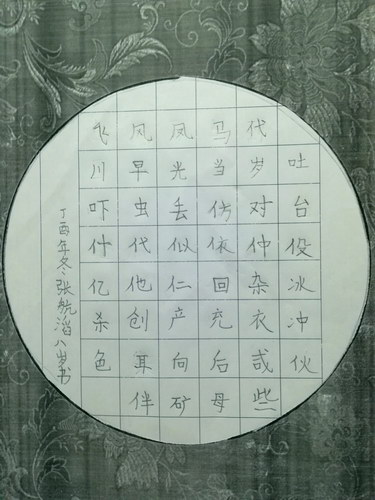 飞风凤马代
川早光当岁吐
吓虫丢伤对台
什代似依仲役
亿他仁回杂冰
杀创产充衣冲
色耳向后或伙
伴矿母些
丁酉年冬张航滔八岁书